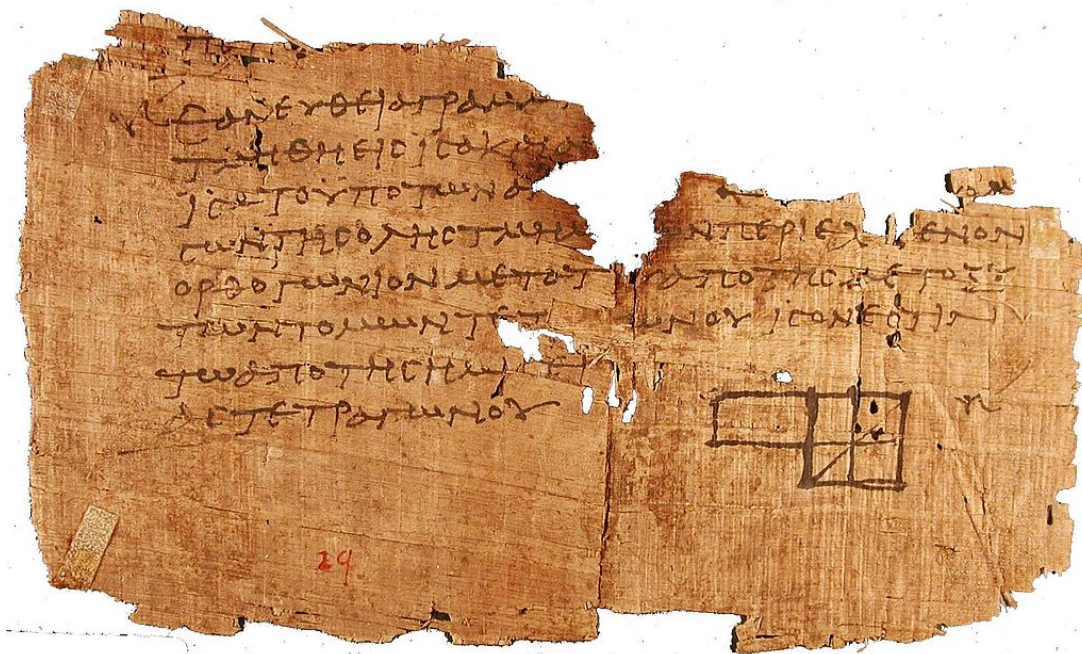 ΕΑΝ ΕΥΘΕΙΑ ΓΡΑΜΜ
ΤΜΗΘΗ ΕΙϹ ΙϹΑ ΚΑΙ Α
ΙϹΑ ΤΟ ΥΠΟ ΤΩΝ ΑΝ
ϹΩΝ ΤΗϹ ΟΛΗϹ ΤΜΗΜ Ν ΠΕΡΙΕΧ ΜΕΝΟΝ
ΟΡΘΟΓΩΝΙΟΝ ΜΕΤΑ ΤΟΥ ΑΠΟ ΤΗϹ ΜΕΤΟΞΥ
ΤΩΝ ΤΟΜΩΝ ΤΕΤ ΩΝΟΥ ΙϹΟΝ ΕϹΤΙΝ
ΤΩ ΑΠΟ ΤΗϹ ΗΜΙ
ΤΕΤΡΑΓΩΝΟΥ
29